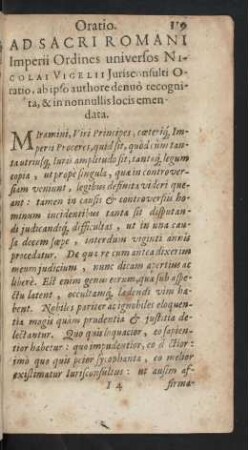 Oratio. 119
AD SACRI ROMANI
Imperii Ordines universos NI-
COLAI VIGELII Jurisconsulti O-
ratio. ab ipso authore denuò recogni-
ta, & in nonnullis locis emen-
data.
Miramini, Viri Principes, cæteriq; Im-
perii Proceres, quid sit, quòd cum tan-
ta utriusq; Iuris amplitudo sit, tantaq; legum
copia, ut propè singula, quæ in controver-
siam veniunt, legibus definita videri que-
ant: tamen in causis & controversiis ho-
minum incidentibus tanta sit disputan-
di judicandiq; difficultas, ut in una cau-
sa decem sæpe, interdum viginti annis
procedatur. De qua re cum antea dixerim
meum judicium, nunc dicam apertius ac
liberè. Est enim genus eorum, qui sub aspe-
ctu latent, occultamq; lædendi vim ha-
bent. Nobiles pariter ac ignobiles eloquen-
tia magis quàm prudentia & justitia de-
lectantur. Quo quis loquacior, eo sapien-
tior habetur: quo impudentior, eo doctior:
imò quo quis pejor sycophanta, eo melior
existimatur Iurisconsultus: ut ausim af-
I 4 firma-